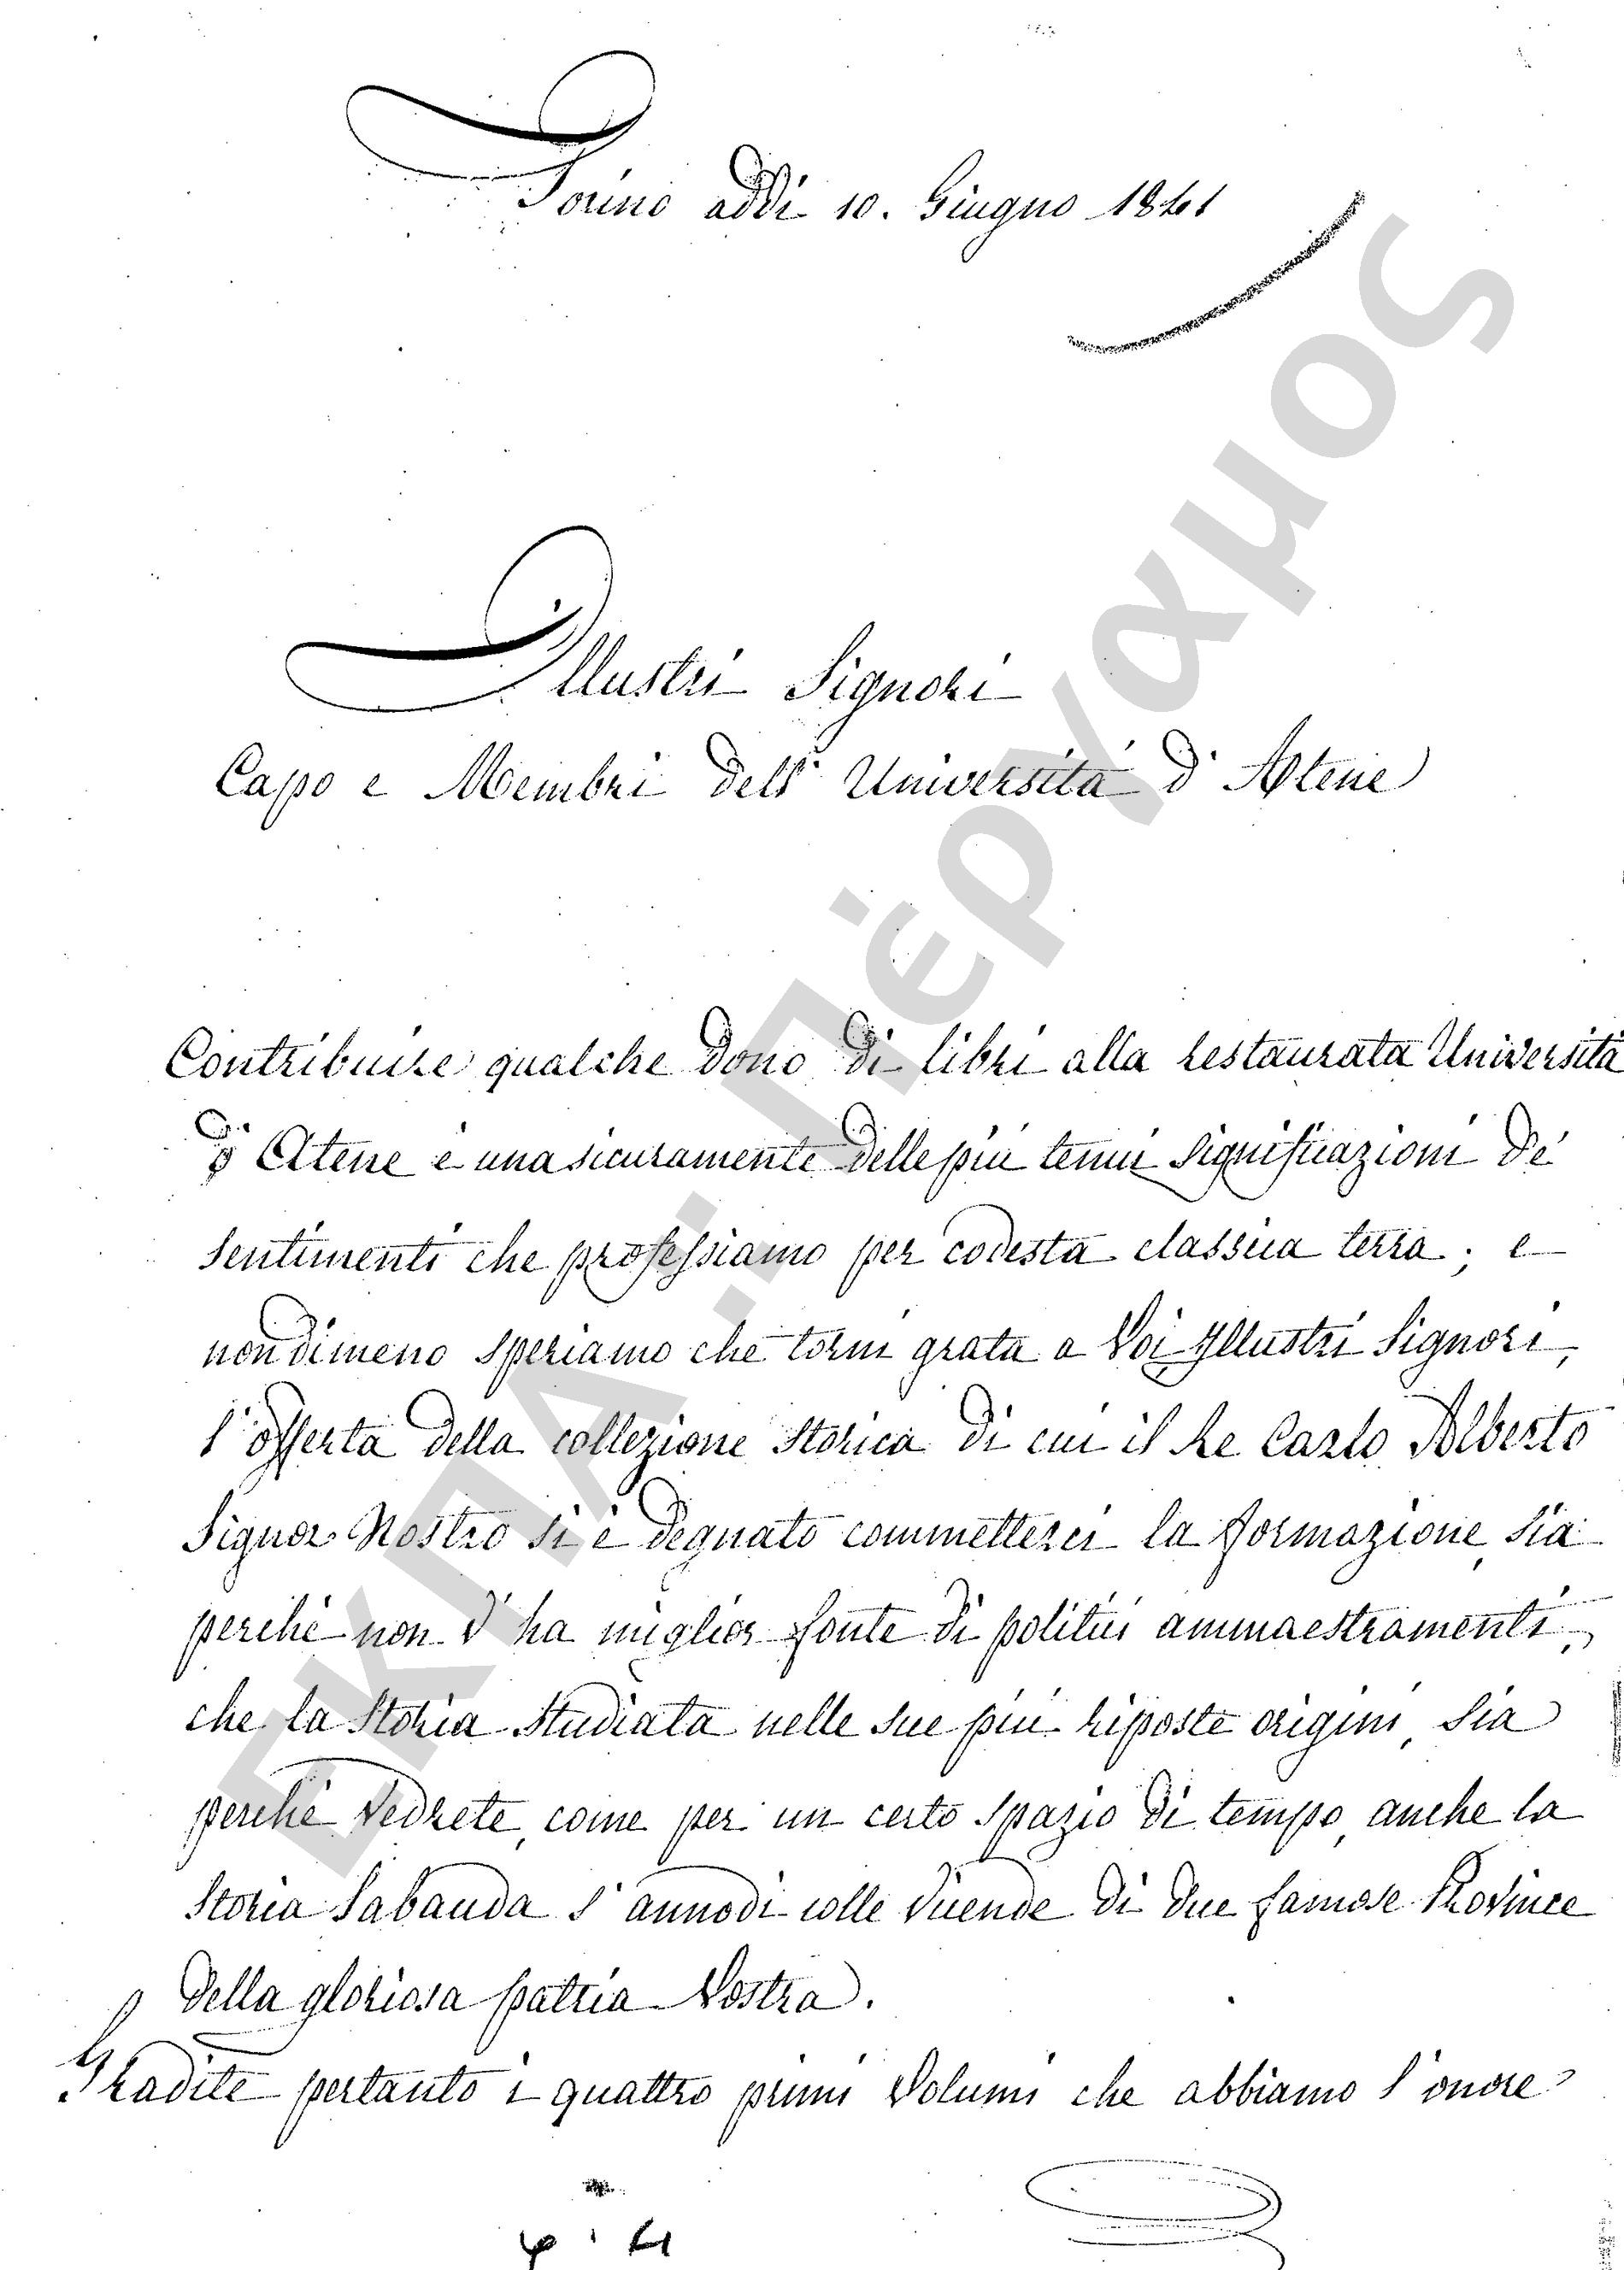 Torino addì 10. Giugno 1841
Illustri Signori
Capo e Membri dell' Università d' Atene
Contribuire qualche dono di libri alla restaurata Università
d' Atene è una sicuramente delle più tenui significazioni de'
sentimenti che professiamo per codesta classica terra; e
nondimeno speriamo che torni grata a Voi Illustri Signori,
l' offerta della collezione Storica di cui il Re Carlo Alberto
Signor Nostro si è degnato commetterci la formazione sia
perchè non v' ha miglior fonte di politici ammaestramenti,
che la Storia studiata nelle sue più riposte origini, sia
perchè Vedrete, come per un certo spazio di tempo, anche la
Storia Sabauda s' annodi colle vicende di due famose Provincie
della gloriosa patria Vostra.
Gradite pertanto i quattro primi Volumi che abbiamo l' onore
ΕΚΠΑ.: Πέργαμος